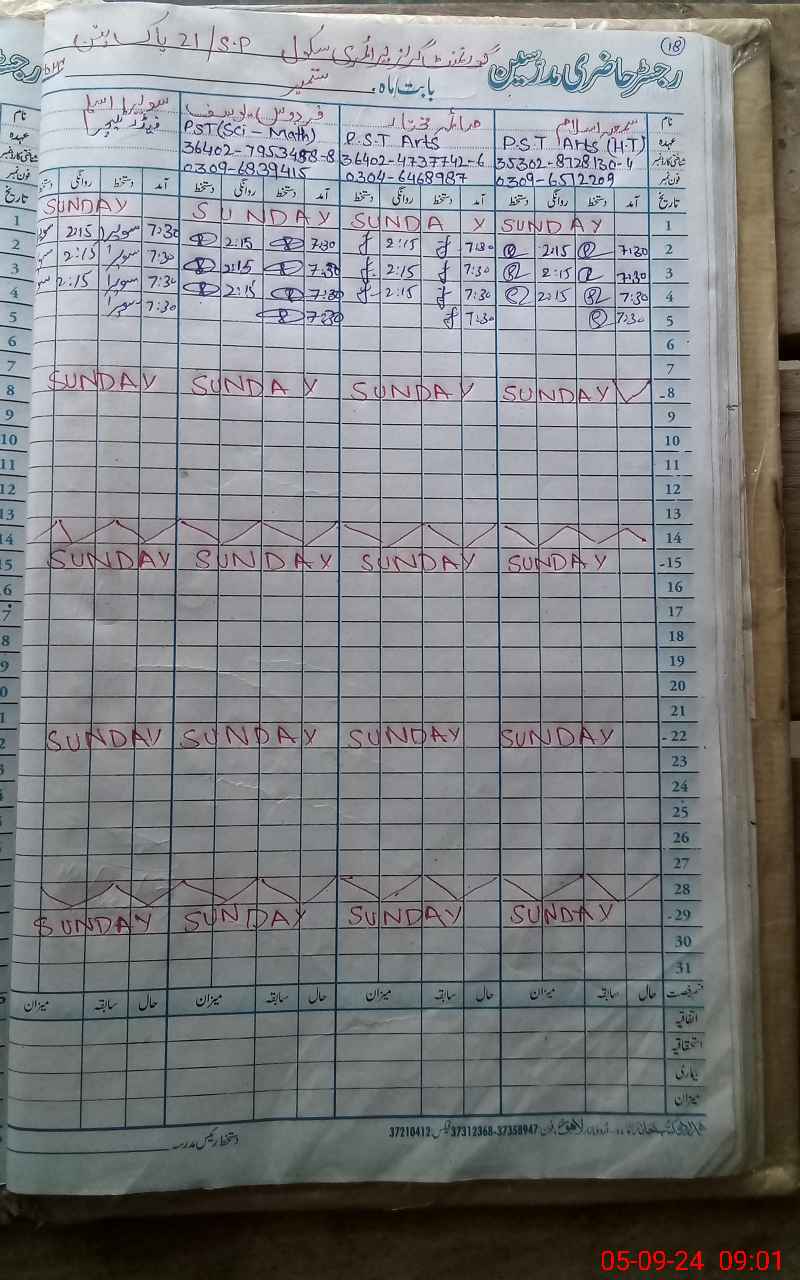 18
گورنمنٹ گرلز پرائمری سکول 21/S.P پاک پتن
رجسٹر حاضری مدرسین
بابت ماہ ستمبر
نام
عہدہ
شناختی کارڈ نمبر
فون نمبر
P.S.T Arts (H.T)
35302-8728130-4
0309-6512209
P.S.T Arts
36402-4737742-6
0304-6468987
فردوس یوسف
PST (Sci - Math)
36402-7953488-8
0309-6839415
تاریخ آمد دستخط روانگی دستخط آمد دستخط روانگی دستخط آمد دستخط روانگی دستخط آمد دستخط روانگی
1 SUNDAY SUNDAY SUNDAY SUNDAY
2 7:30 2:15 7:30 2:15 7:30 2:15 7:30 سویرا 2:15
3 7:30 2:15 7:30 2:15 7:30 2:15 7:30 سویرا 2:15
4 7:30 2:15 7:30 2:15 7:30 2:15 7:30 سویرا 2:15
5 7:30 7:30 7:30 7:30 سویرا
6
7
8 SUNDAY SUNDAY SUNDAY SUNDAY
9
10
11
12
13
14
15 SUNDAY SUNDAY SUNDAY SUNDAY
16
17
18
19
20
21
22 SUNDAY SUNDAY SUNDAY SUNDAY
23
24
25
26
27
28
29 SUNDAY SUNDAY SUNDAY SUNDAY
30
31
قسم رخصت حال سابقہ میزان حال سابقہ میزان حال سابقہ میزان حال سابقہ میزان
اتفاقیہ
استحقاقیہ
بیماری
میزان
37312368-37358947 فیکس: 37210412
دستخط رئیس مدرسہ
05-09-24 09:01